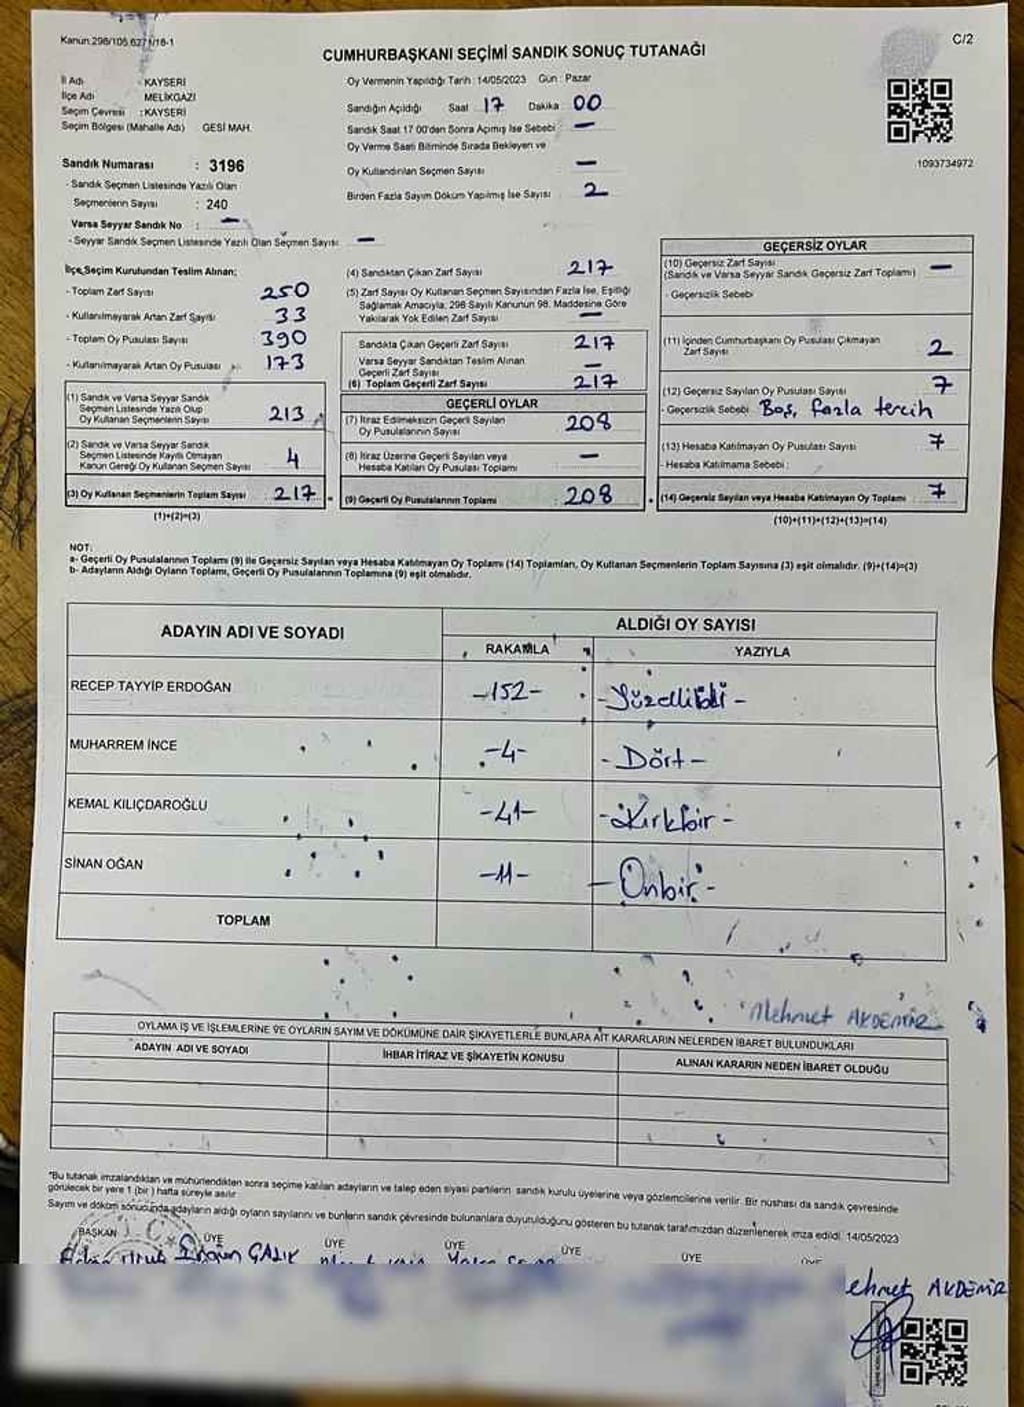 Kanun 298/105,6271/16-1
C/2
CUMHURBAŞKANI SEÇİMİ SANDIK SONUÇ TUTANAĞI
İl Adı : KAYSERİ
İlçe Adı MELİKGAZİ
Seçim Çevresi : KAYSERİ
Seçim Bölgesi (Mahalle Adı) GESİ MAH.
Sandık Numarası : 3196
- Sandık Seçmen Listesinde Yazılı Olan
Seçmenlerin Sayısı : 240
Varsa Seyyar Sandık No : —
- Seyyar Sandık Seçmen Listesinde Yazılı Olan Seçmen Sayısı —
Oy Vermenin Yapıldığı Tarih : 14/05/2023 Gün : Pazar
Sandığın Açıldığı Saat 17 Dakika 00
Sandık Saat 17 00'den Sonra Açımış İse Sebebi —
Oy Verme Saati Bitiminde Sırada Bekleyen ve
Oy Kullandırılan Seçmen Sayısı —
Birden Fazla Sayım Döküm Yapılmış İse Sayısı 2
1093734972
İlçe Seçim Kurulundan Teslim Alınan;
- Toplam Zarf Sayısı 250
- Kullanılmayarak Artan Zarf Sayısı 33
- Toplam Oy Pusulası Sayısı 390
- Kullanılmayarak Artan Oy Pusulası 173
(1) Sandık ve Varsa Seyyar Sandık
Seçmen Listesinde Yazılı Olup
Oy Kullanan Seçmenlerin Sayısı 213
(2) Sandık ve Varsa Seyyar Sandık
Seçmen Listesinde Kayıtlı Olmayan
Kanun Gereği Oy Kullanan Seçmen Sayısı 4
(3) Oy Kullanan Seçmenlerin Toplam Sayısı 217
(1)+(2)=(3)
(4) Sandıktan Çıkan Zarf Sayısı 217
(5) Zarf Sayısı Oy Kullanan Seçmen Sayısından Fazla İse, Eşitliği
Sağlamak Amacıyla, 298 Sayılı Kanunun 98. Maddesine Göre
Yakılarak Yok Edilen Zarf Sayısı —
Sandıkta Çıkan Geçerli Zarf Sayısı 217
Varsa Seyyar Sandıktan Teslim Alınan
Geçerli Zarf Sayısı —
(6) Toplam Geçerli Zarf Sayısı 217
GEÇERLİ OYLAR
(7) İtiraz Edilmeksizin Geçerli Sayılan
Oy Pusulalarının Sayısı 208
(8) İtiraz Üzerine Geçerli Sayılan veya
Hesaba Katılan Oy Pusulası Toplamı —
(9) Geçerli Oy Pusulalarının Toplamı 208
GEÇERSİZ OYLAR
(10) Geçersiz Zarf Sayısı
(Sandık ve Varsa Seyyar Sandık Geçersiz Zarf Toplamı) —
- Geçersizlik Sebebi
(11) İçinden Cumhurbaşkanı Oy Pusulası Çıkmayan
Zarf Sayısı 2
(12) Geçersiz Sayılan Oy Pusulası Sayısı 7
- Geçersizlik Sebebi Boş, fazla tercih
(13) Hesaba Katılmayan Oy Pusulası Sayısı 7
- Hesaba Katılmama Sebebi :
(14) Geçersiz Sayılan veya Hesaba Katılmayan Oy Toplamı 7
(10)+(11)+(12)+(13)=(14)
NOT:
a- Geçerli Oy Pusulalarının Toplamı (9) ile Geçersiz Sayılan veya Hesaba Katılmayan Oy Toplamı (14) Toplamları, Oy Kullanan Seçmenlerin Toplam Sayısına (3) eşit olmalıdır. (9)+(14)=(3)
b- Adayların Aldığı Oyların Toplamı, Geçerli Oy Pusulalarının Toplamına (9) eşit olmalıdır.
ADAYIN ADI VE SOYADI
ALDIĞI OY SAYISI
RAKAMLA YAZIYLA
RECEP TAYYİP ERDOĞAN -152- -Yüzelliiki-
MUHARREM İNCE -4- -Dört-
KEMAL KILIÇDAROĞLU -41- -Kırkbir-
SİNAN OĞAN -11- -Onbir-
TOPLAM
Mehmet AKDEMİR
OYLAMA İŞ VE İŞLEMLERİNE VE OYLARIN SAYIM VE DÖKÜMÜNE DAİR ŞİKAYETLERLE BUNLARA AİT KARARLARIN NELERDEN İBARET BULUNDUKLARI
ADAYIN ADI VE SOYADI İHBAR İTİRAZ VE ŞİKAYETİN KONUSU ALINAN KARARIN NEDEN İBARET OLDUĞU
*Bu tutanak imzalandıktan ve mühürlendikten sonra seçime katılan adayların ve talep eden siyasi partilerin sandık kurulu üyelerine veya gözlemcilerine verilir. Bir nüshası da sandık çevresinde
görülecek bir yere 1 (bir) hafta süreyle asılır
Sayım ve döküm sonucunda adayların aldığı oyların sayılarını ve bunların sandık çevresinde bulunanlara duyurulduğunu gösteren bu tutanak tarafımızdan düzenlenerek imza edildi. 14/05/2023
BAŞKAN ÜYE ÜYE ÜYE ÜYE ÜYE ÜYE
ÇALIK
ehmet AKDEMİR